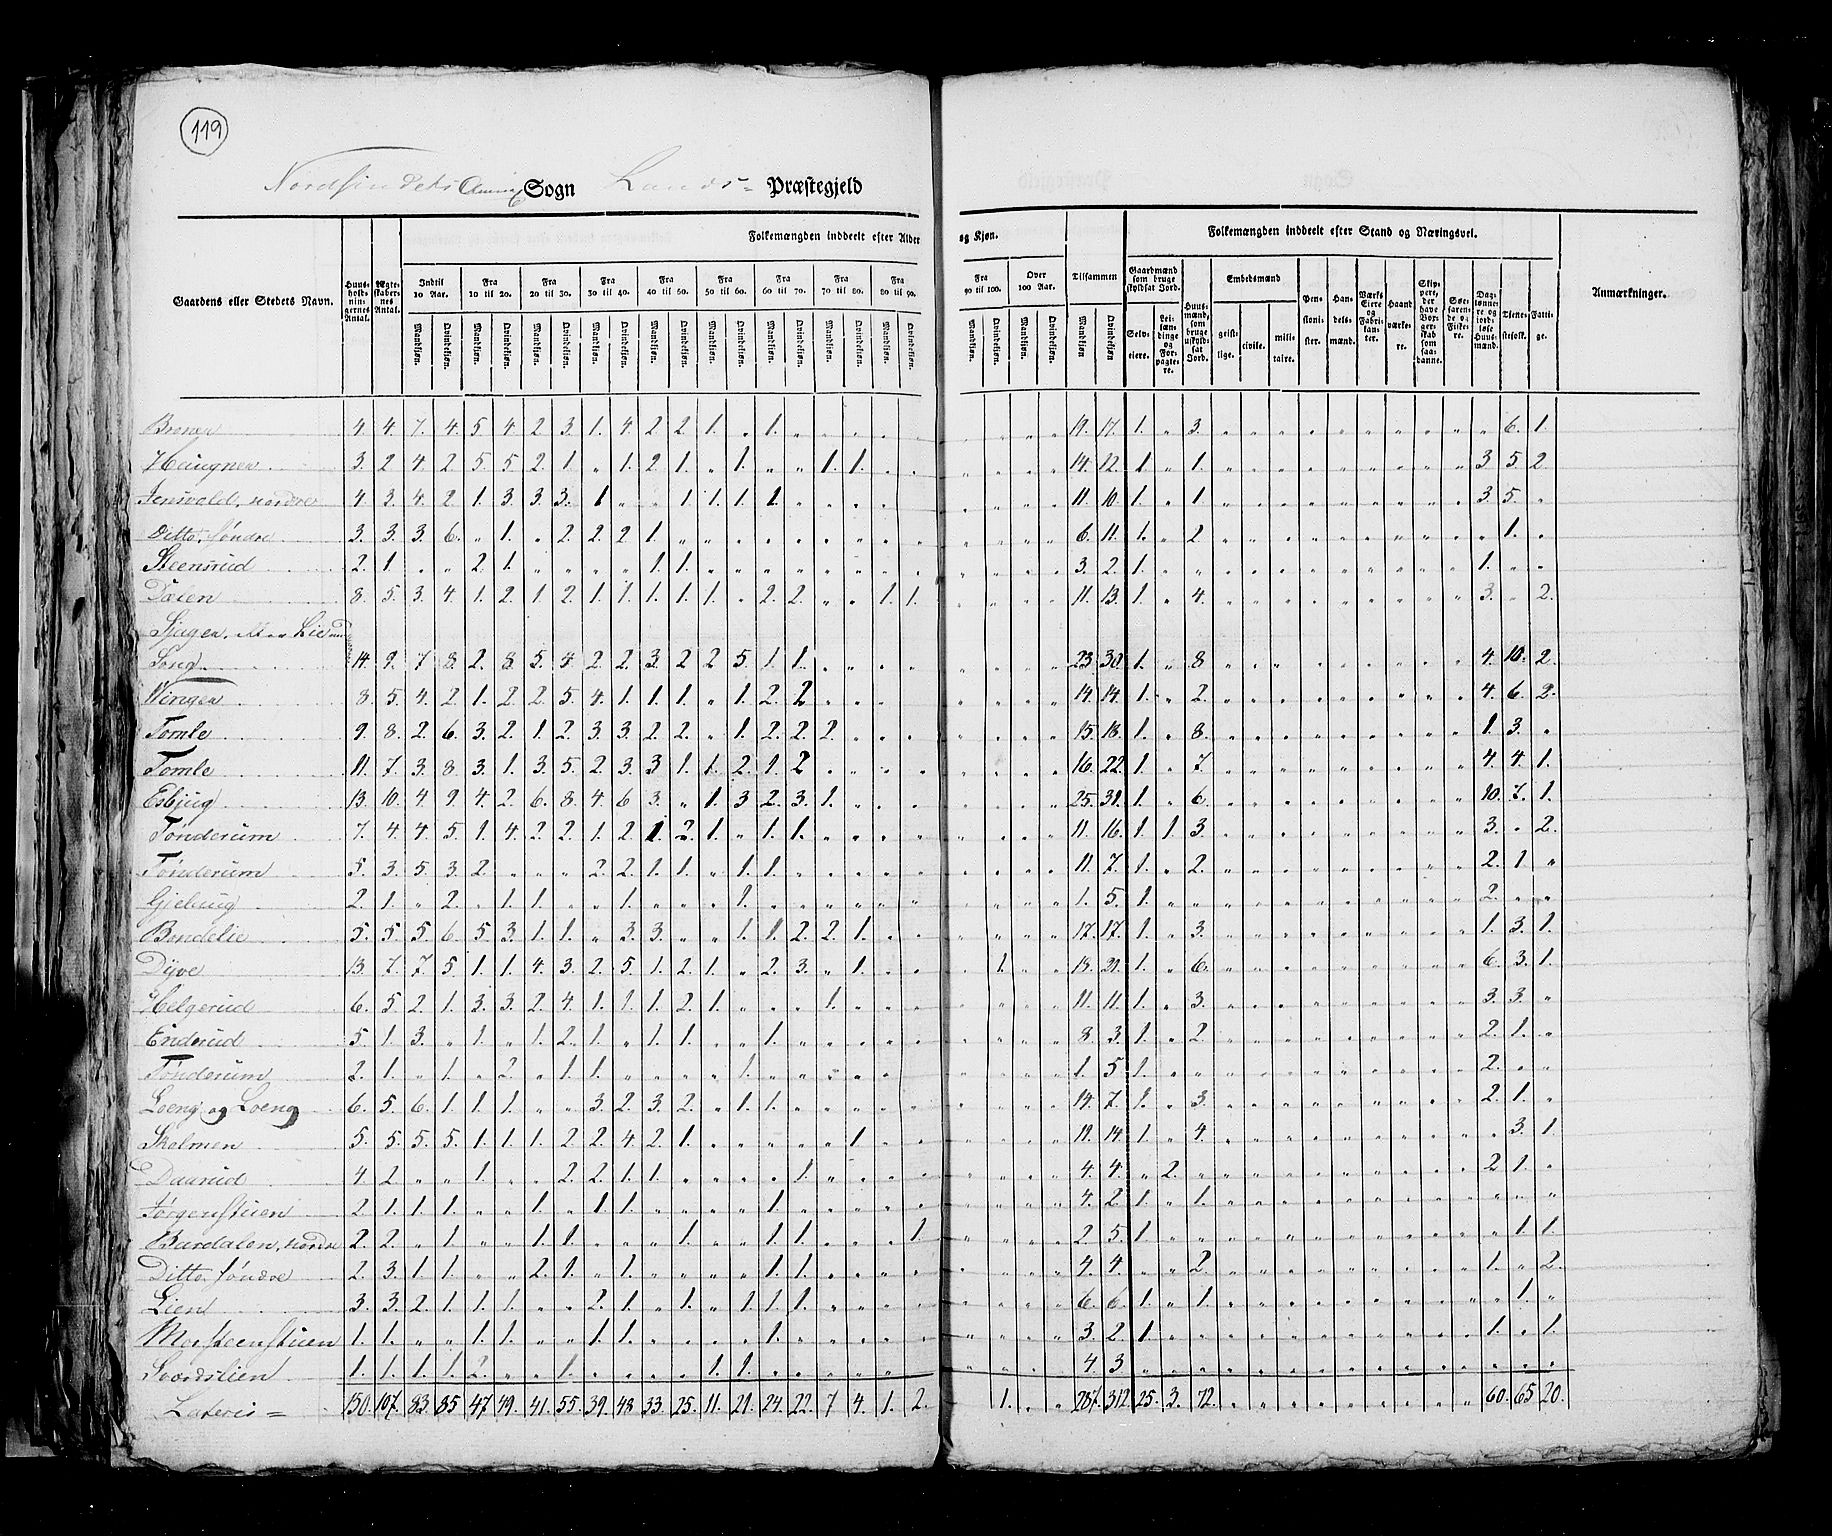 119
Nordsindets Annex Sogn Lands Præstegjeld
Gaardens eller Stedets Navn.
Huusholdningernes Antal.
Ægteskabernes Antal.
Folkemængden inddeelt efter Alder og Kjøn.
Indtil 10 Aar. Fra 10 til 20. Fra 20 til 30. Fra 30 til 40. Fra 40 til 50. Fra 50 til 60. Fra 60 til 70. Fra 70 til 80. Fra 80 til 90. Fra 90 til 100. Over 100 Aar. Tilsammen
Mandkjøn. Qvindekjøn.
Folkemængden inddeelt efter Stand og Næringsvei.
Gaardmænd som bruge skyldsat Jord.
Selveiere. Leilændinge og Forpagtere.
Huusmænd, som bruge uskyldsat Jord.
Embedsmænd
geistlige. civile. militaire.
Pensionister. Handelsmænd. Værks Eiere og Fabrikanter. Haandværkere. Skippere, der have Borgerskab som saadanne. Søefarende og Fiskere. Daglønnere og jordløse Huusmænd. Tjenestefolk. Fattige.
Anmærkninger.
Brenna 4. 4. 7. 4. 5 4 2 3. 1. 4. 2 2 1. " 1. 19. 17. 1. " 3. 6. 1.
Haugner 3. 2 4. 2. 5. 5 2. 1. " 1. 2 1. " 1. " " 1. 1. 14. 12. 1 " 1. 3 5. 2
Jensvold, nordre 4. 3. 4. 2 1. 3. 3. 3. 1 " " 1. 1. 1. 1. 11. 10. 1. " 1 3. 5. "
Ditto, søndre 3. 3. 3 6. " 1. " 2. 2 2 1. 6. 11. 1. " 2 " 1. "
Steensrud 2. 1. " " 2. 1. " " " " 1. 1. 3. 2. 1. 1. " "
Dælen 8. 5. 3. 4. 1. 2. 1. 2. 1. 1. 1. 1. 1. " 2. 2. " " 1. 1. 11. 13. 1. " 4. 3. " 2.
Song 14. 9. 7 8. 2. 8. 5. 4 2 2. 3. 2 2 5. 1. 1. 23. 30. 1. " 8 4. 10. 2.
Vingen 8. 5. 4. 2 1. 2 2. 5. 4. 1. 1. 1. " 1. 2. 2 14. 14. 1. " 2. 4. 6. 2.
Tomle 9. 8. 2. 6. 3. 2. 1. 2. 3. 3. 2. 2. " 1. 2. 2. 2. 15. 18. 1. " 8. 1. 3. "
Tomle 11. 7. 3. 8. 3. 1. 3. 5. 2. 3. 3 1. 1. 2. 1. 2 16. 22. 1. " 7 4. 4. 1.
Esbjug 13. 10. 4. 9. 4. 2. 6. 8. 4. 6 3. " 1. 3 2. 3. 1. 25. 31. 1. " 6. 10. 7. 1.
Tønderum 7. 4. 4. 5. 1. 4. 2. 2. 1. 2. 1. 2. 1. " 1. 1. 11. 16. 1. 1. 3. 3. " 2.
Tønderum 5. 3. 5. 3. 2. " " " 2. 2. 1. 1. " 1. 1. 11. 7. 1. " 2. 2. 1. "
Gjebug 2. 1. " 2. " 1. 1. " " 1. " " " 1. 1. 5. 1. 2. " "
Bendelie 5. 5. 5. 6. 5. 3. 1. 1. " 3. 3. " " 1. 1. 2. 2. 1. 17. 17. 1. " 3. 1. 3. 1.
Dyve 13. 7. 7. 5 1. 1. 4. 3. 2. 5. 1. 2. 1. " 2. 3. " 1. 1. 18. 21. 1. " 6. 6. 3. 1.
Helgerud 6. 5. 2. 1. 3. 3. 2. 4. 1. 1. 1. 2. 1. " " " 1. 11. 11. 1. " 3. 3. 3. "
Enderud 5. 1. 3. " 1. " 1. 2. 1. " 1. 1. " " 1. 8. 3. 1. " 2. 2. 1. "
Tønderum 2. 1. " 1. " 2. " 1. 1. " " " " 1. 1. 5 1. 2. " "
Loeng og Loeng 6. 5. 6. 1. 1. 1. " " 3. 2. 3. 2. " 1. 1. 14. 7. 1. " 3. 2. 1. "
Skelmen 5. 5. 5. 5. 1. 1. 1. 2. 2. 4. 2. 1. " " " " " 1. 19. 14. 1. " 4. " 3. 1.
Daurud 4. 2. " " 1. " " 2. 2. 1. 1. " " " " 1. 4. 4. " 2. " 2 1. "
Jørgenstuen 2. 1. 1. 1. " " 1. " 1. 1. " " " " 1. 4. 2. 1. " 1.
Bardalen, nordre 2. 2. " 1. " " 1. 1. " " " 1. " " 1. 1. " " " 1. 2 5. 1. " 1. 1.
Ditto, søndre 2. 3. 1. 1. " " 2. 1. " 1. " " " " 1. 1. 4. 4. " " 2. 1. " 2.
Lien 3. 3. 2. 1. 1. 1. " " 2. 1. " 1. " 1. 1. 1. 6. 6. 1. " 1. " 1. "
Morsteenstuen 1. 1. " " 1. 1. " " 1. 1. " " " " 1. 3. 2. 1. 1. " 1.
Sværdslien 1. 1. 1. 1. 2. " " 1. " " " " 1. 1. 4. 3
Lateris = 150. 107. 83. 85. 47. 49. 41. 55. 39. 48. 33. 25. 11. 21. 24. 22. 7. 4. 1. 2. 1. 287. 312. 25. 3. 72. 60. 65 20.